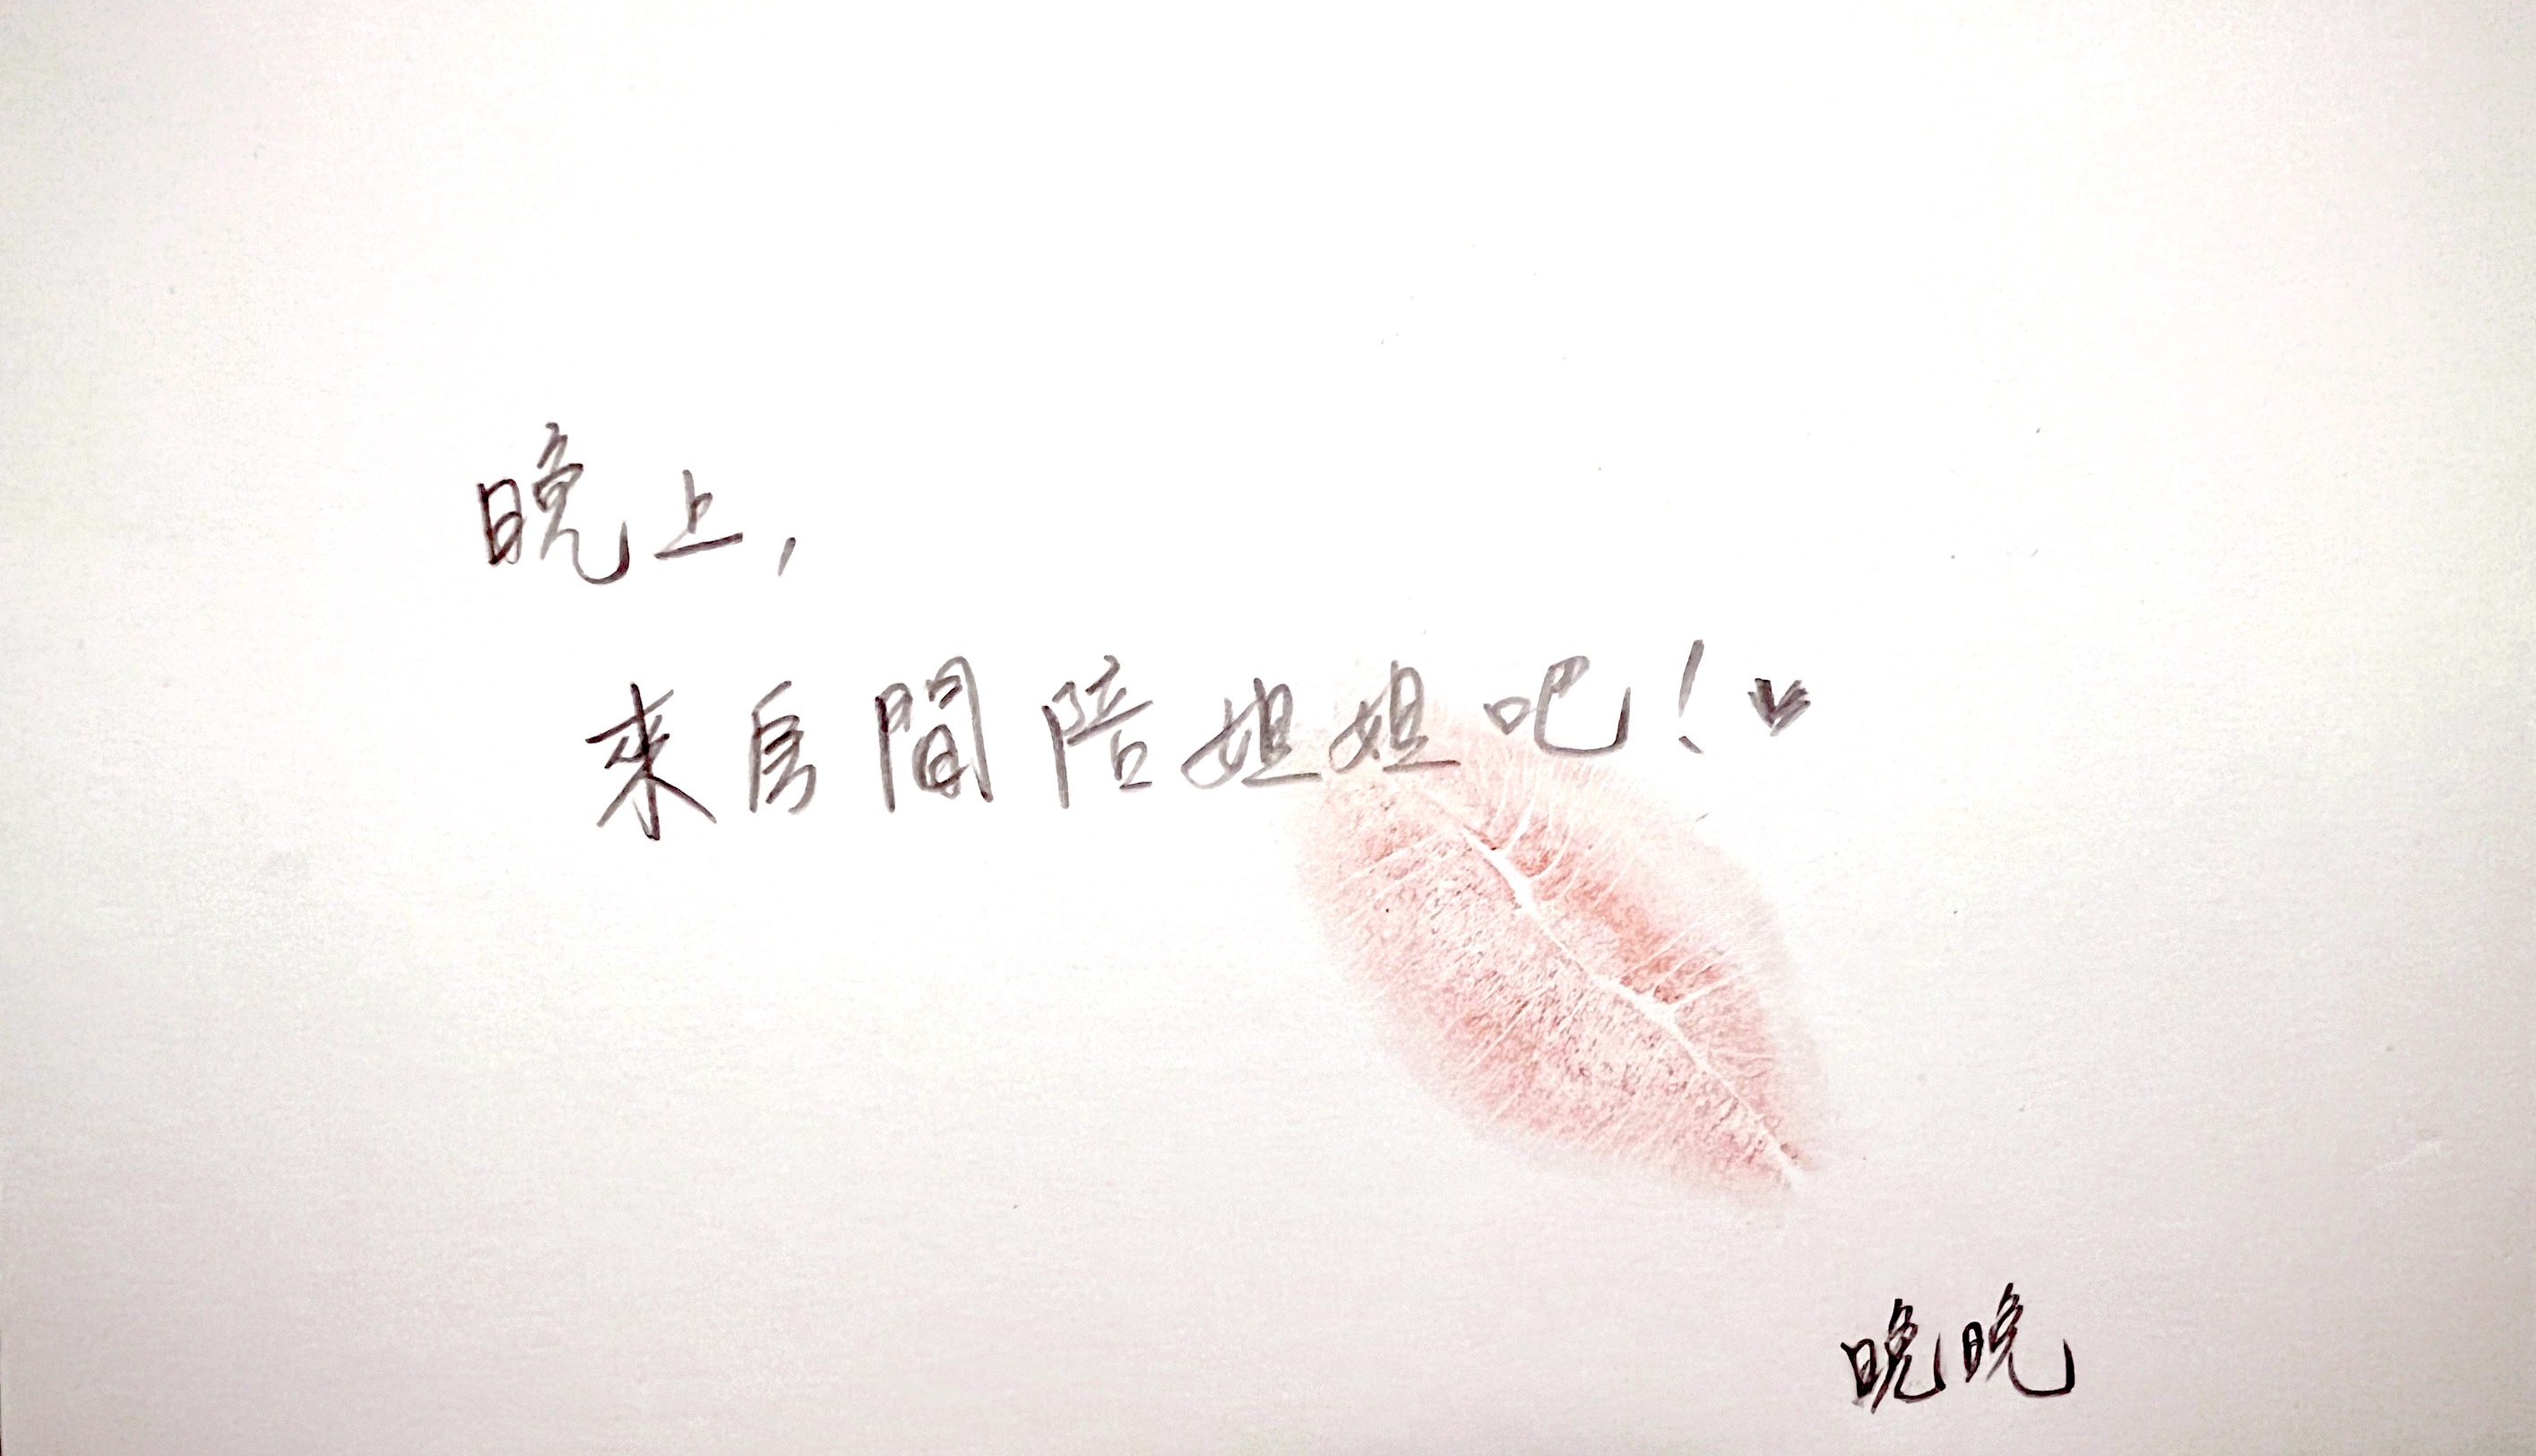 晚上，
來房間陪姐姐吧！♥
晚晚